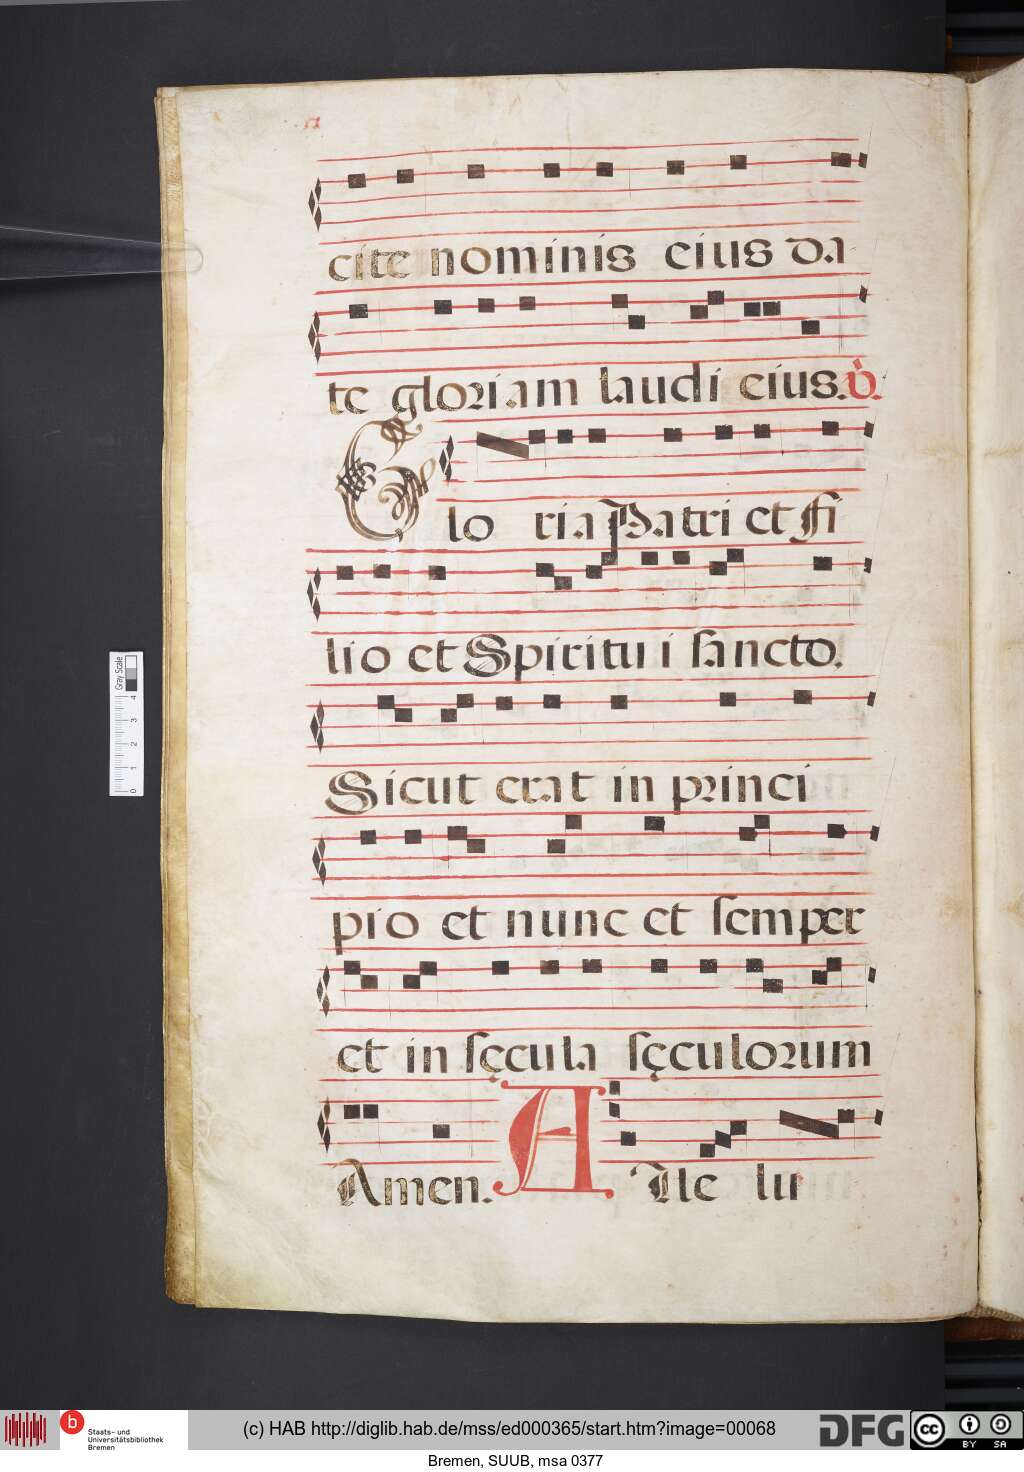 cite nominis eius da
te gloriam laudi eius. V.
Glo ria Patri et fi
lio et Spiritui i sancto.
Sicut erat in princi
pio et nunc et semper
et in sęcula sęculorum
Amen. A lle lu
Gray Scale
4
3
2
1
0
b
Staats- und
Universitätsbibliothek
Bremen
(c) HAB http://diglib.hab.de/mss/ed000365/start.htm?image=00068
DFG
cc
BY SA
Bremen, SUUB, msa 0377